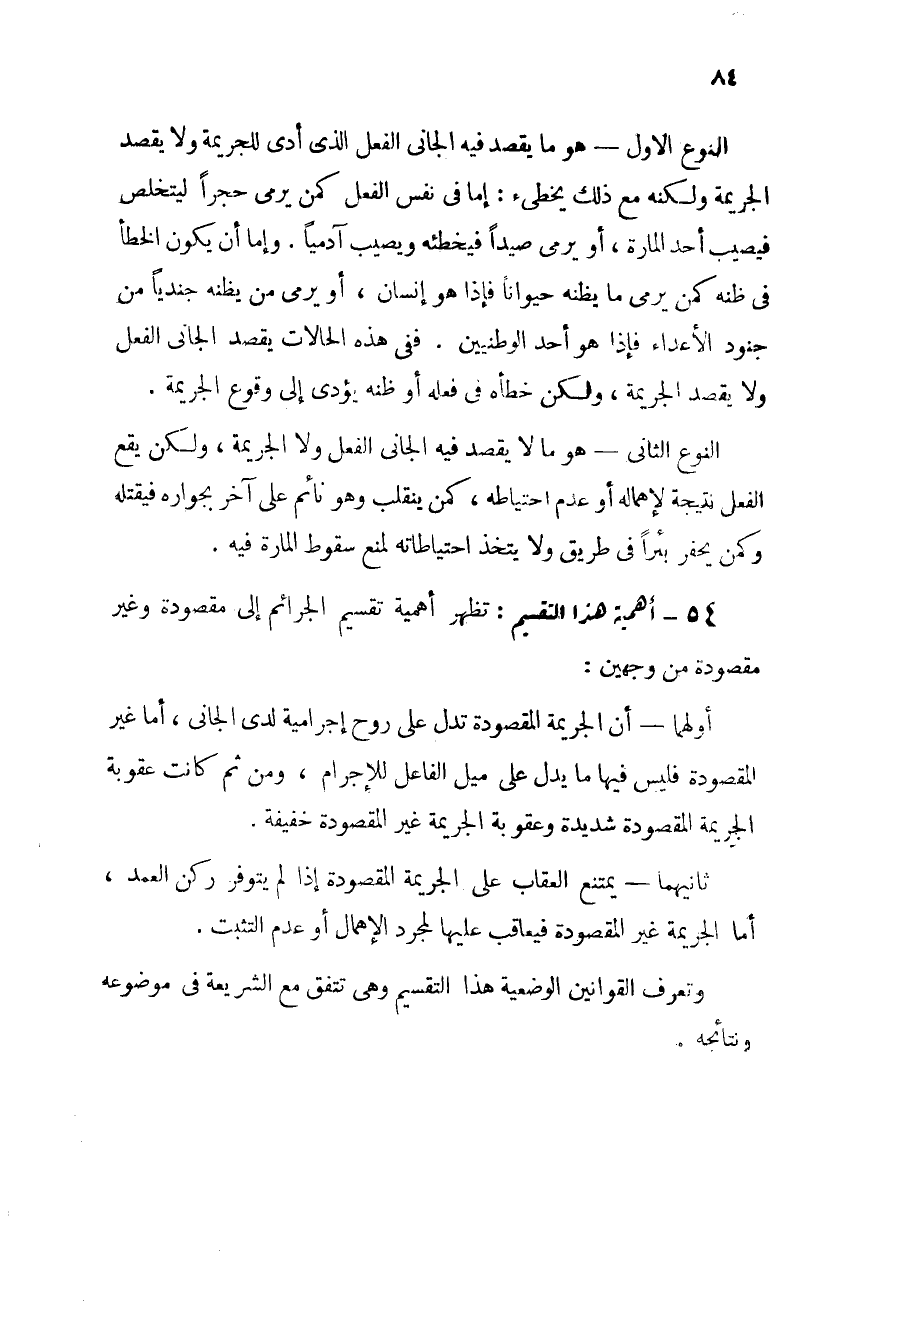 ٨٤
النوع الاول — هو ما يقصد فيه الجانى الفعل الذى أدى للجريمة ولا يقصد
الجريمة ولكنه مع ذلك يخطىء : إما فى نفس الفعل كمن يرمى حجراً ليتخلص
فيصيب أحد المارة ، أو يرمى صيداً فيخطئه ويصيب آدمياً . وإما أن يكون الخطأ
فى ظنه كمن يرمى ما يظنه حيواناً فإذا هو إنسان ، أو يرمى من يظنه جندياً من
جنود الأعداء فإذا هو أحد الوطنيين . ففى هذه الحالات يقصد الجانى الفعل
ولا يقصد الجريمة ، ولكن خطأه فى فعله أو ظنه يؤدى إلى وقوع الجريمة .
النوع الثانى — هو ما لا يقصد فيه الجانى الفعل ولا الجريمة ، ولكن يقع
الفعل نتيجة لإهماله أو عدم احتياطه ، كمن ينقلب وهو نائم على آخر بجواره فيقتله
وكمن يحفر بئراً فى طريق ولا يتخذ احتياطاته لمنع سقوط المارة فيه .
٥٤ – أهمية هذا التقسيم : تظهر أهمية تقسيم الجرائم إلى مقصودة وغير
مقصودة من وجهين :
أولهما — أن الجريمة المقصودة تدل على روح إجرامية لدى الجانى ، أما غير
المقصودة فليس فيها ما يدل على ميل الفاعل للإجرام ، ومن ثم كانت عقوبة
الجريمة المقصودة شديدة وعقوبة الجريمة غير المقصودة خفيفة .
ثانيهما — يمتنع العقاب على الجريمة المقصودة إذا لم يتوفر ركن العمد ،
أما الجريمة غير المقصودة فيعاقب عليها لمجرد الإهمال أو عدم التثبت .
وتعرف القوانين الوضعية هذا التقسيم وهى تتفق مع الشريعة فى موضوعه
ونتائجه .